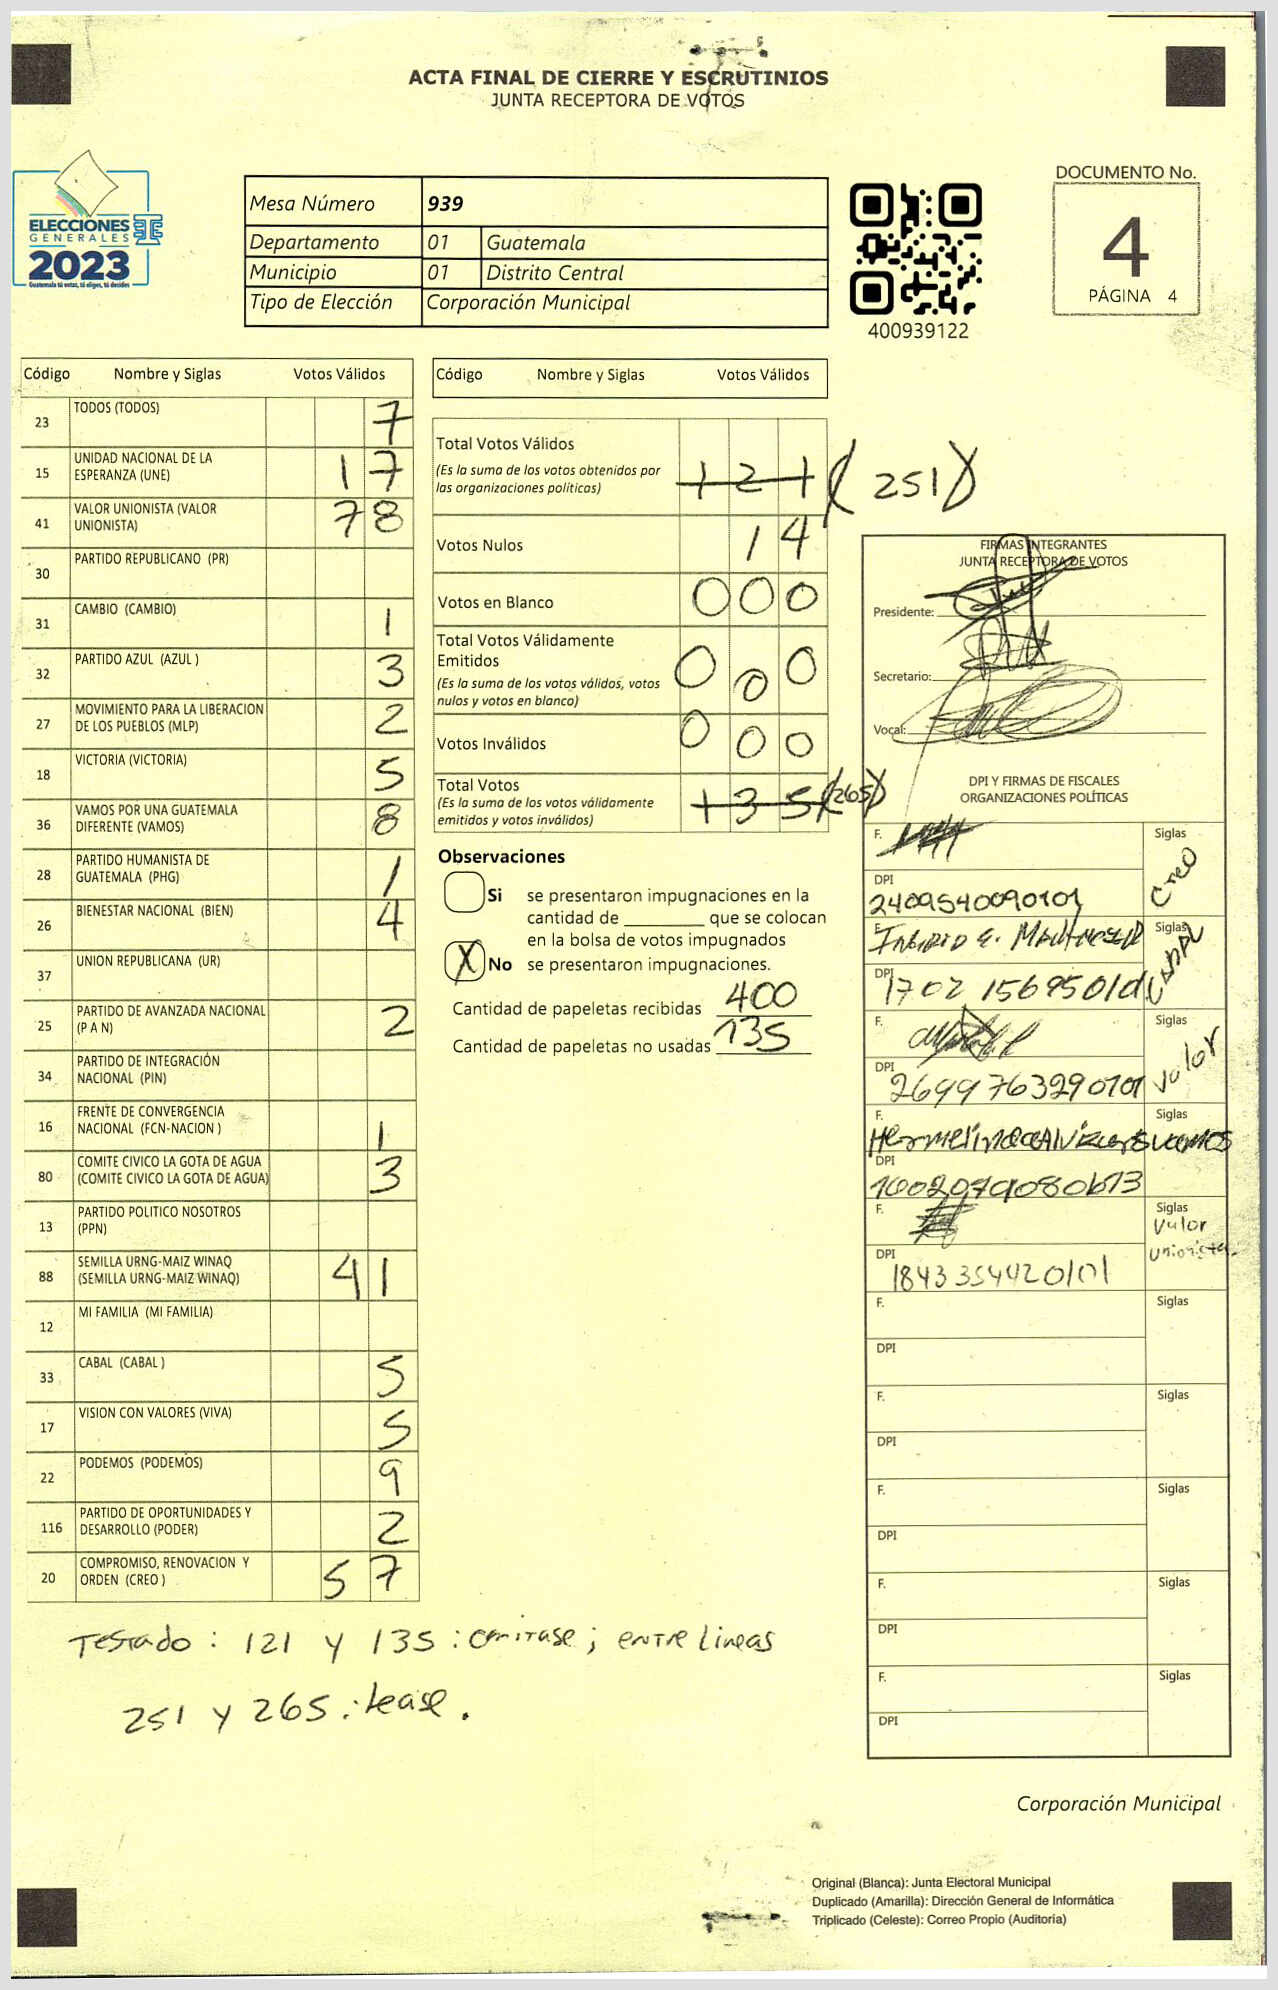 ACTA FINAL DE CIERRE Y ESCRUTINIOS
JUNTA RECEPTORA DE VOTOS
ELECCIONES
GENERALES
2023
Guatemala tú votas, tú eliges, tú decides
Mesa Número 939
Departamento 01 Guatemala
Municipio 01 Distrito Central
Tipo de Elección Corporación Municipal
400939122
DOCUMENTO No.
4
PÁGINA 4
Código Nombre y Siglas Votos Válidos
23 TODOS (TODOS) 7
15 UNIDAD NACIONAL DE LA
ESPERANZA (UNE) 17
41 VALOR UNIONISTA (VALOR
UNIONISTA) 78
30 PARTIDO REPUBLICANO (PR)
31 CAMBIO (CAMBIO) 1
32 PARTIDO AZUL (AZUL ) 3
27 MOVIMIENTO PARA LA LIBERACION
DE LOS PUEBLOS (MLP) 2
18 VICTORIA (VICTORIA) 5
36 VAMOS POR UNA GUATEMALA
DIFERENTE (VAMOS) 8
28 PARTIDO HUMANISTA DE
GUATEMALA (PHG) 1
26 BIENESTAR NACIONAL (BIEN) 4
37 UNION REPUBLICANA (UR)
25 PARTIDO DE AVANZADA NACIONAL
(P A N) 2
34 PARTIDO DE INTEGRACIÓN
NACIONAL (PIN)
16 FRENTE DE CONVERGENCIA
NACIONAL (FCN-NACION ) 1
80 COMITE CIVICO LA GOTA DE AGUA
(COMITE CIVICO LA GOTA DE AGUA) 3
13 PARTIDO POLITICO NOSOTROS
(PPN)
88 SEMILLA URNG-MAIZ WINAQ
(SEMILLA URNG-MAIZ WINAQ) 41
12 MI FAMILIA (MI FAMILIA)
33 CABAL (CABAL ) 5
17 VISION CON VALORES (VIVA) 5
22 PODEMOS (PODEMOS) 9
116 PARTIDO DE OPORTUNIDADES Y
DESARROLLO (PODER) 2
20 COMPROMISO, RENOVACION Y
ORDEN (CREO ) 57
Testado : 121 y 135 : omitase; entre lineas
251 y 265 : lease.
Código Nombre y Siglas Votos Válidos
Total Votos Válidos
(Es la suma de los votos obtenidos por
las organizaciones políticas) 121 (251)
Votos Nulos 14
Votos en Blanco 000
Total Votos Válidamente
Emitidos 000
(Es la suma de los votos válidos, votos
nulos y votos en blanco)
Votos Inválidos 000
Total Votos
(Es la suma de los votos válidamente
emitidos y votos inválidos) 135 (265)
Observaciones
Si se presentaron impugnaciones en la
cantidad de ________ que se colocan
en la bolsa de votos impugnados
X No se presentaron impugnaciones.
Cantidad de papeletas recibidas 400
Cantidad de papeletas no usadas 135
FIRMAS INTEGRANTES
JUNTA RECEPTORA DE VOTOS
Presidente:
Secretario:
Vocal:
DPI Y FIRMAS DE FISCALES
ORGANIZACIONES POLÍTICAS
F. Siglas Creo
DPI 2409540090101
F. Siglas
DPI
F. Siglas Valor
DPI 2699763290101
F. Siglas vamos
DPI
F. Siglas Valor
unionista.
DPI 1843354420101
F. Siglas
DPI
F. Siglas
DPI
F. Siglas
DPI
F. Siglas
DPI
F. Siglas
DPI
Corporación Municipal
Original (Blanca): Junta Electoral Municipal
Duplicado (Amarilla): Dirección General de Informática
Triplicado (Celeste): Correo Propio (Auditoría)